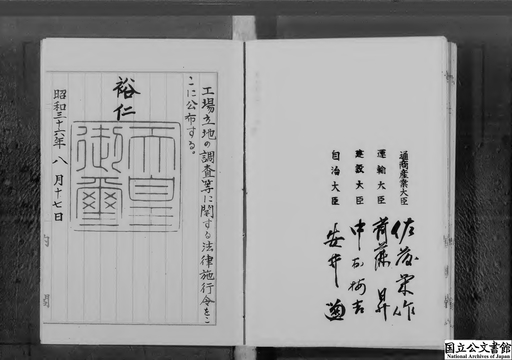 工場立地の調査等に関する法律施行令をこ
こに公布する。
裕仁
天皇
御璽
昭和三十六年 八 月 十七 日
内閣
通商産業大臣 佐藤栄作
運輸大臣 斎藤 昇
建設大臣 中村梅吉
自治大臣 安井 謙
国立公文書館
National Archives of Japan